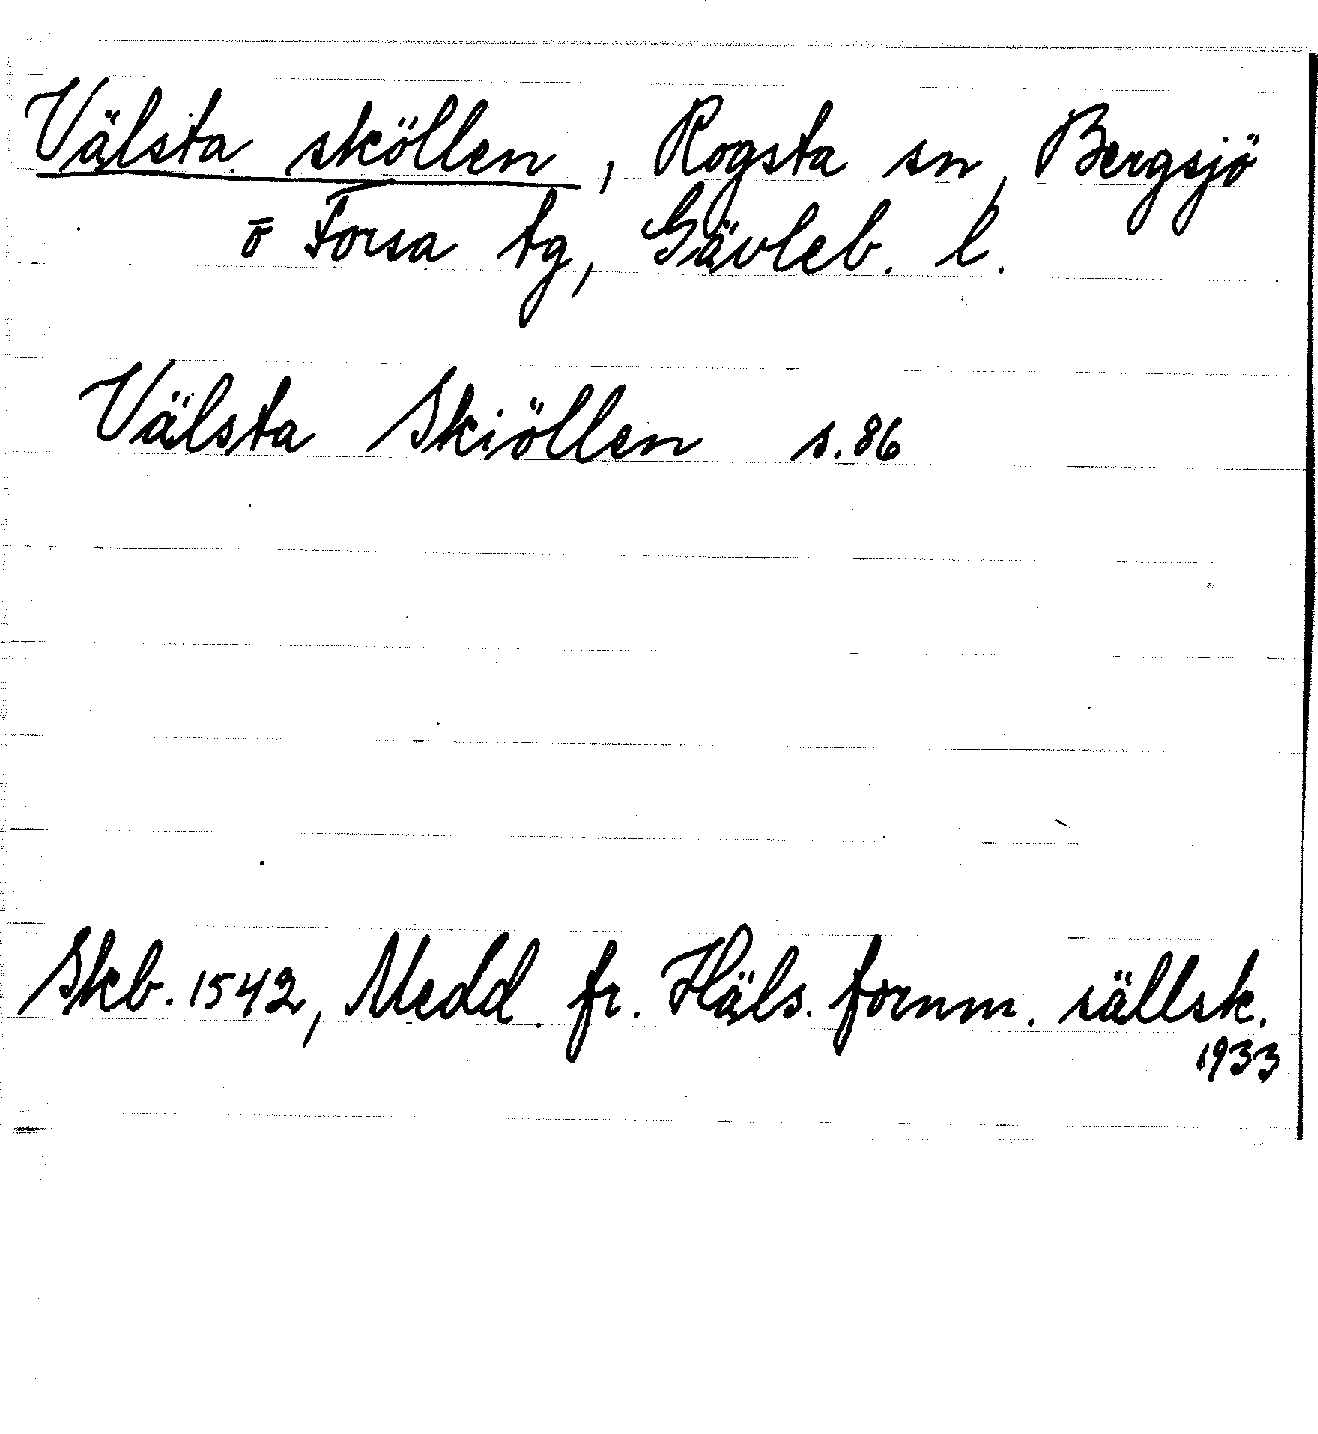 Välsta sköllen, Rogsta sn, Bergsjö
o Forsa tg, Gävleb. l.
Välsta Skiöllen s.86
Skb. 1542, Medd. fr. Häls. fornm. sällsk.
1933